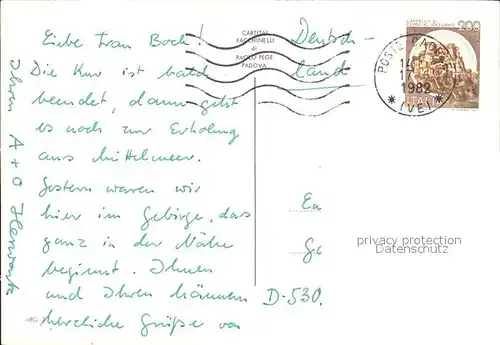 Liebe Frau Bock!
Die Kur ist bald
beendet, dann geht
es noch zur Erholung
ans Mittelmeer.
Gestern waren wir
hier im Gebirge, das
ganz in der Nähe
beginnt. Ihnen
und Ihren Männern
herzliche Grüße von
Ihren A + O
CARTITAL
FACCHINELLI
di
PAOLO PEGE
PADOVA
Deutsch-
land
200
POSTE
1982
(VE)
ITALIA
Ea
Ge
D-530.
privacy protection
Datenschutz